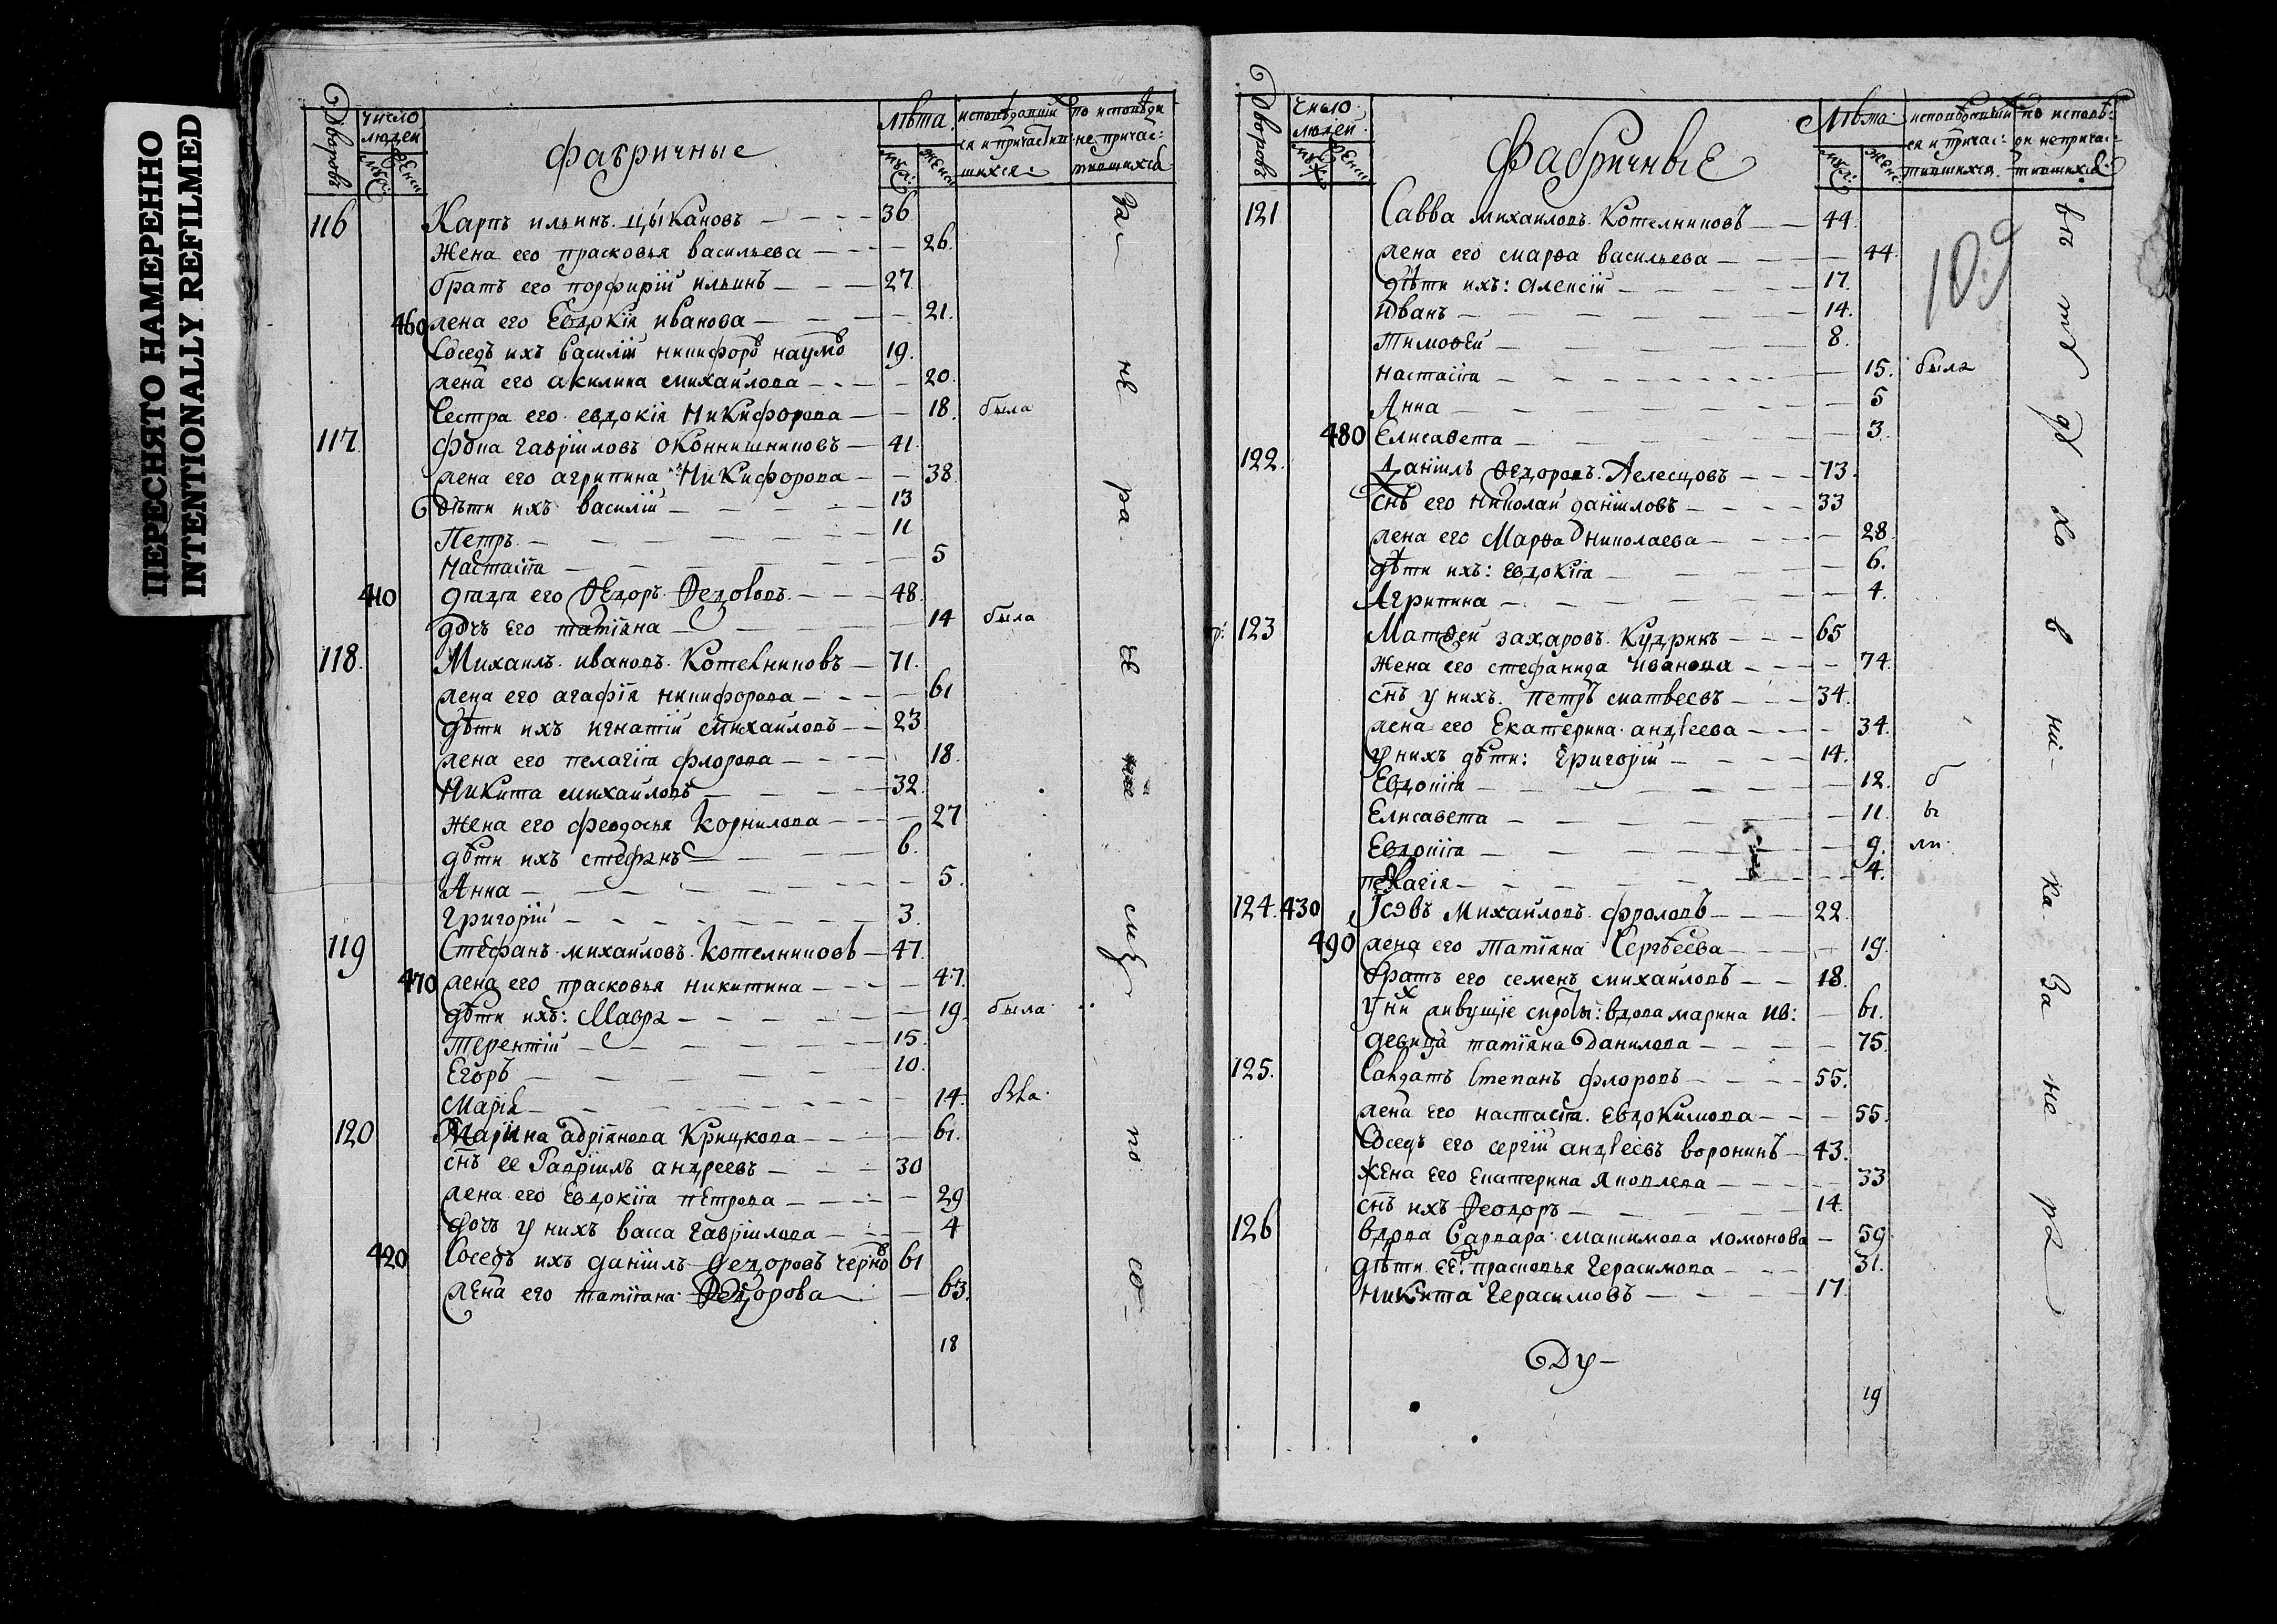 ПЕРЕСНЯТО НАМЕРЕННО
INTENTIONALLY REFILMED
Дворовъ
число людей
муж:
женс
фабричные
лѣта
муж:
женс
исповѣдавшiи
ся и причастив
шихся:
по исповѣди
не причас:
тившихся
116 Карпъ ильинъ. цыкановъ 36.
жена его прасковья васильева 26.
братъ его порфирiй ильинъ 27.
460 жена его Евдокiя иванова 21.
Соседъ ихъ василiй никифоро наумо 19.
жена его акилина михайлова 20.
Сестра его евдокiя Никифорова 18. была
117. фока гаврiиловъ оконнишниковъ 41.
жена его агрипина Никифорова 38
дѣти ихъ василiй 13
Петръ 11
Настасiя 5
410 дядя его Ѳедоръ Ѳедоровъ 48.
дочь его татiяна 14 была
118. Михаилъ. ивановъ. Котелниковъ 71.
жена его агафiя никифорова 61
дѣти ихъ игнатiй михайловъ 23
жена его пелагiя флорова 18.
Никита михайловъ 32.
жена его феодосья Корнилова 27
дѣти ихъ стефанъ 6.
Анна 5.
григорiй 3.
119 Стефанъ. михайловъ. Котелниковъ 47.
470 жена его прасковья никитина 47.
дѣти ихъ: Мавра 19. была
терентiй 15.
Егоръ 10.
Марiя 14. была
120 Марина адрiянова Крицкова 61.
снъ ее Гаврiилъ андреевъ 30
жена его Евдокiя петрова 29
дочь у нихъ васса гаврiилова 4
420 Соседъ ихъ данiилъ Ѳедоровъ черно 61
жена его татiяна Ѳедорова 63.
18
за
не
ра
со
Дворовъ
число
людей
муж:
женс
Фабричные
Лѣта
муж:
женс:
исповѣдавшiи
ся и причас:
тившихся.
по исповѣ:
ди непричас:
тившихся:
109
121 Савва михаиловъ. Котелниковъ 44.
жена его марѳа васильева 44
дѣти ихъ: алексiй 17.
Иванъ 14.
Тимоѳей 8.
настасiя 15. была
Анна 5
480 Елисавета 3.
122. Данiилъ Ѳедоровъ. Делесцовъ 73.
снъ его николай данiиловъ 33
жена его Марѳа николаева 28.
дѣти ихъ: евдокiя 6.
Агрипина 4.
123 Матѳей захаровъ. Кудринъ 65
жена его стефанида иванова 74.
снъ у нихъ. петръ матвеевъ 34.
жена его Екатерина. андреева 34.
у нихъ дѣти: григорiй 14.
Евдокiя 12. б
Елисавета 11. ы
Евдокiя 9. ли
пелагiя 4.
124. 430 Iовъ Михайловъ. фроловъ 22.
490 жена его татiяна Сергѣева 19.
братъ его семенъ михайловъ 18.
у них живущiе сироты: вдова марина ив: 61.
девица татiяна Данилова 75.
125. Салдатъ Степанъ флоровъ 55.
жена его настасiя. Евдокимова 55.
Соседъ его сергiй андреевъ воронинъ 43.
жена его екатерина яковлева 33
снъ ихъ Ѳеодоръ 14.
126 вдова варвара максимова ломонова 59.
дѣти ее: прасковья Герасимова 31.
никита Герасимовъ 17.
Ду-
19
ко
в
ни-
ка
за
не
ра